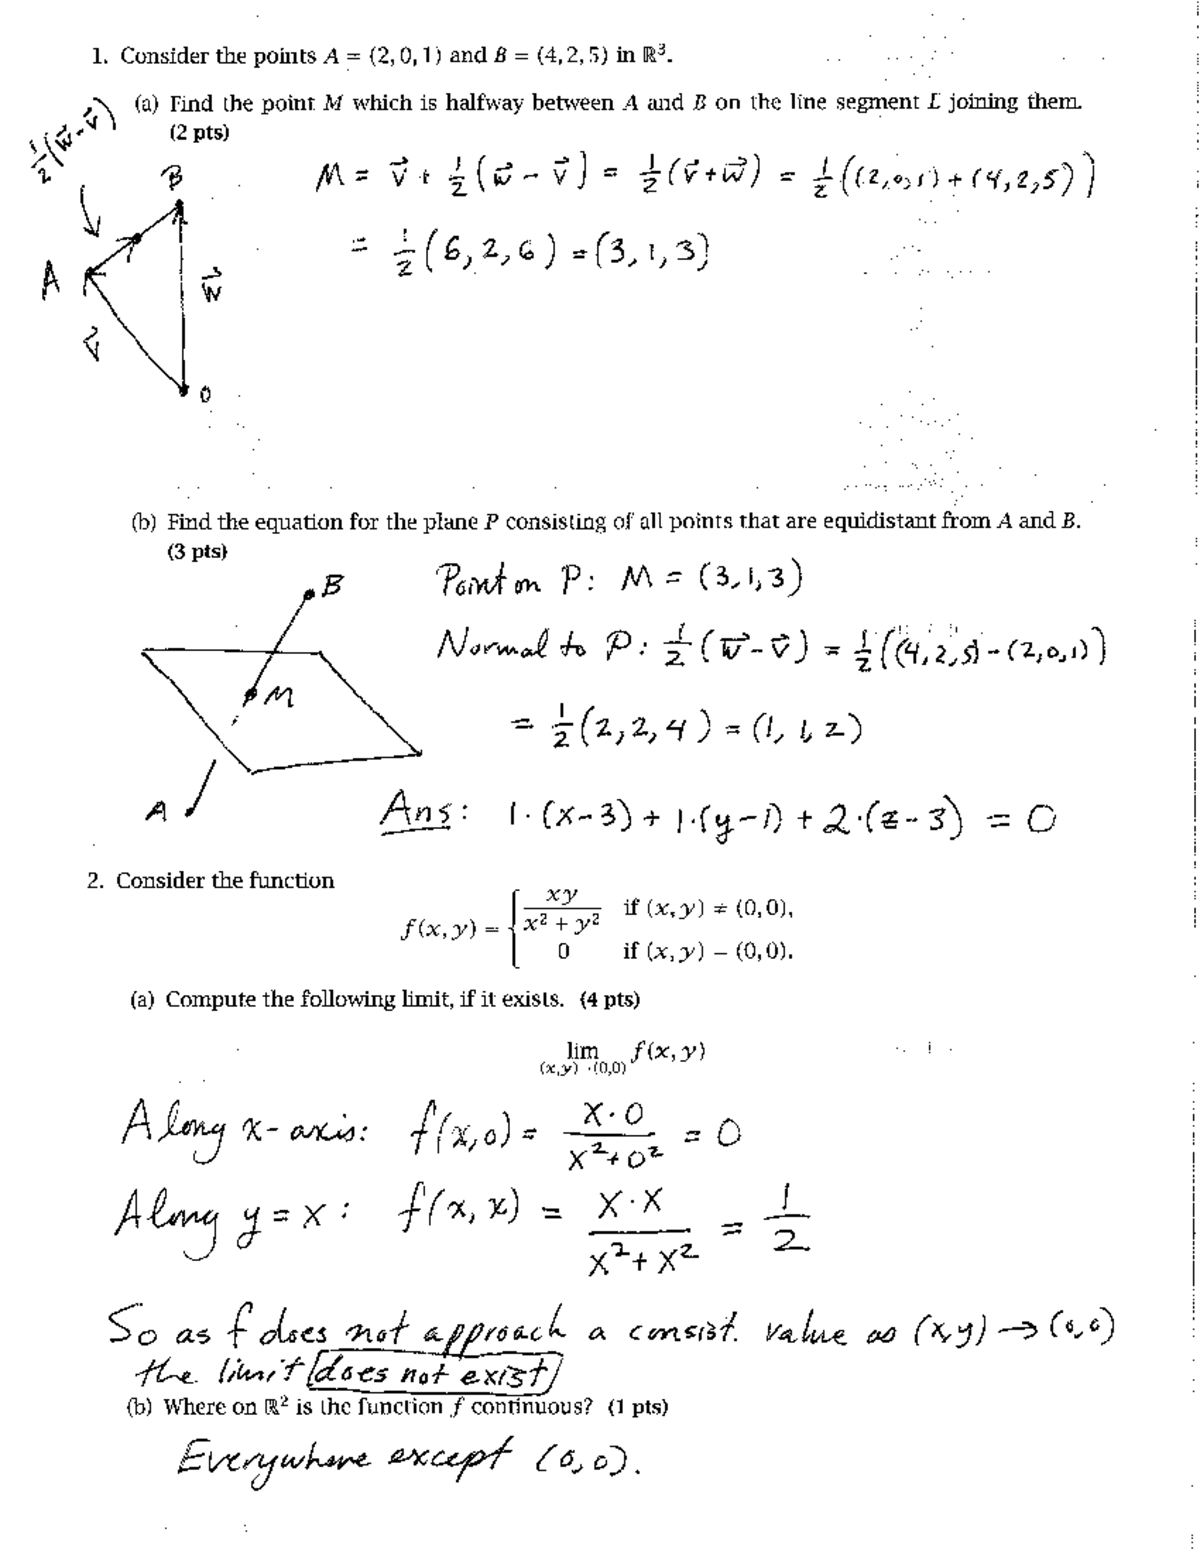 1. Consider the points A = (2, 0, 1) and B = (4, 2, 5) in ℝ³.
(a) Find the point M which is halfway between A and B on the line segment L joining them.
(2 pts)
½(w⃗ - v⃗)
B
A
w⃗
v⃗
0
M = v⃗ + ½(w⃗ - v⃗) = ½(v⃗ + w⃗) = ½((2,0,1) + (4,2,5))
= ½(6, 2, 6) = (3, 1, 3)
(b) Find the equation for the plane P consisting of all points that are equidistant from A and B.
(3 pts)
B
M
A
Point on P: M = (3, 1, 3)
Normal to P: ½(w⃗ - v⃗) = ½((4,2,5) - (2,0,1))
= ½(2, 2, 4) = (1, 1, 2)
Ans: 1·(x-3) + 1·(y-1) + 2·(z-3) = 0
2. Consider the function
f(x, y) = { xy / (x² + y²) if (x, y) ≠ (0, 0),
0 if (x, y) = (0, 0).
(a) Compute the following limit, if it exists. (4 pts)
lim f(x, y)
(x,y)→(0,0)
Along x-axis: f(x, 0) = x·0 / (x² + 0²) = 0
Along y = x: f(x, x) = x·x / (x² + x²) = 1/2
So as f does not approach a consist. value as (x,y) → (0,0)
the limit does not exist
(b) Where on ℝ² is the function f continuous? (1 pts)
Everywhere except (0,0).